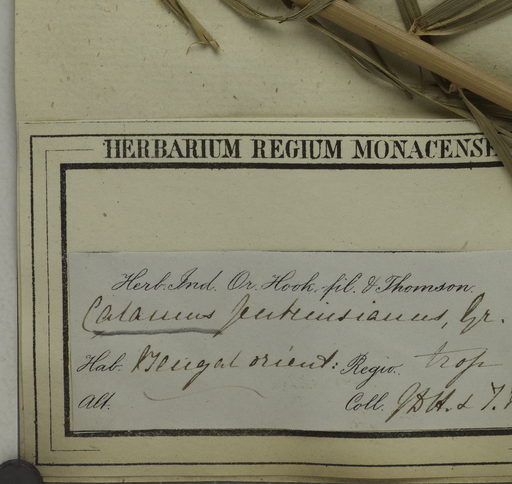 HERBARIUM REGIUM MONACENSE
Herb. Ind. Or. Hook. fil. & Thomson.
Calamus Jenkinsianus, Gr.
Hab. Bengal orient: Regio. trop
Alt. Coll. JDH. & T.